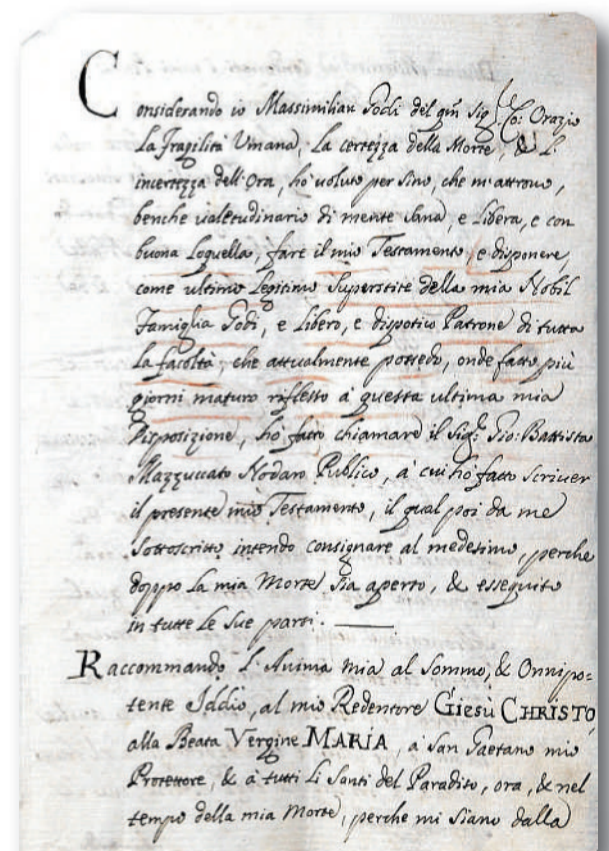 Considerando io Massimilian Godi del qm Sig: Co: Orazio
La fragilità Umana, La certezza della Morte, & L'
incertezza dell'Ora, hò voluto per sino, che m'attrovo,
benche valetudinario di mente Sana, e Libera, e con
buona Loquella, fare il mio Testamento, e disponere,
come ultimo Legitimo Superstite della mia Nobil
Famiglia Godi, e Libero, e dispotico Patrone di tutta
La facoltà, che attualmente possedo, onde fatto più
giorni maturo riflesso à questa ultima mia
Disposizione, hò fatto chiamare il Sigr: Gio: Battista
Mazzuccato Nodaro Publico, à cui hò fatto scriver
il presente mio Testamento, il qual poi da me
Sottoscritto intendo consignare al medesimo, perche
doppo La mia Morte Sia aperto, & esseguito
in tutte Le Sue parti.
Raccommando L'Anima mia al Sommo, & Onnipo=
tente Iddio, al mio Redentore Giesù CHRISTO,
alla Beata Vergine MARIA, à San Gaetano mio
Protettore, & à tutti Li Santi del Paradiso, ora, & nel
tempo della mia Morte, perche mi Siano dalla